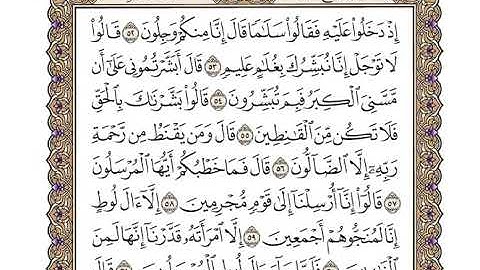 إِذْ دَخَلُوا۟ عَلَيْهِ فَقَالُوا۟ سَلَـٰمًا قَالَ إِنَّا مِنكُمْ وَجِلُونَ ٥٢ قَالُوا۟
لَا تَوْجَلْ إِنَّا نُبَشِّرُكَ بِغُلَـٰمٍ عَلِيمٍ ٥٣ قَالَ أَبَشَّرْتُمُونِى عَلَىٰٓ أَن
مَّسَّنِىَ ٱلْكِبَرُ فَبِمَ تُبَشِّرُونَ ٥٤ قَالُوا۟ بَشَّرْنَـٰكَ بِٱلْحَقِّ
فَلَا تَكُن مِّنَ ٱلْقَـٰنِطِينَ ٥٥ قَالَ وَمَن يَقْنَطُ مِن رَّحْمَةِ
رَبِّهِۦٓ إِلَّا ٱلضَّآلُّونَ ٥٦ قَالَ فَمَا خَطْبُكُمْ أَيُّهَا ٱلْمُرْسَلُونَ
٥٧ قَالُوٓا۟ إِنَّآ أُرْسِلْنَآ إِلَىٰ قَوْمٍ مُّجْرِمِينَ ٥٨ إِلَّآ ءَالَ لُوطٍ
إِنَّا لَمُنَجُّوهُمْ أَجْمَعِينَ ٥٩ إِلَّا ٱمْرَأَتَهُۥ قَدَّرْنَآ إِنَّهَا لَمِنَ